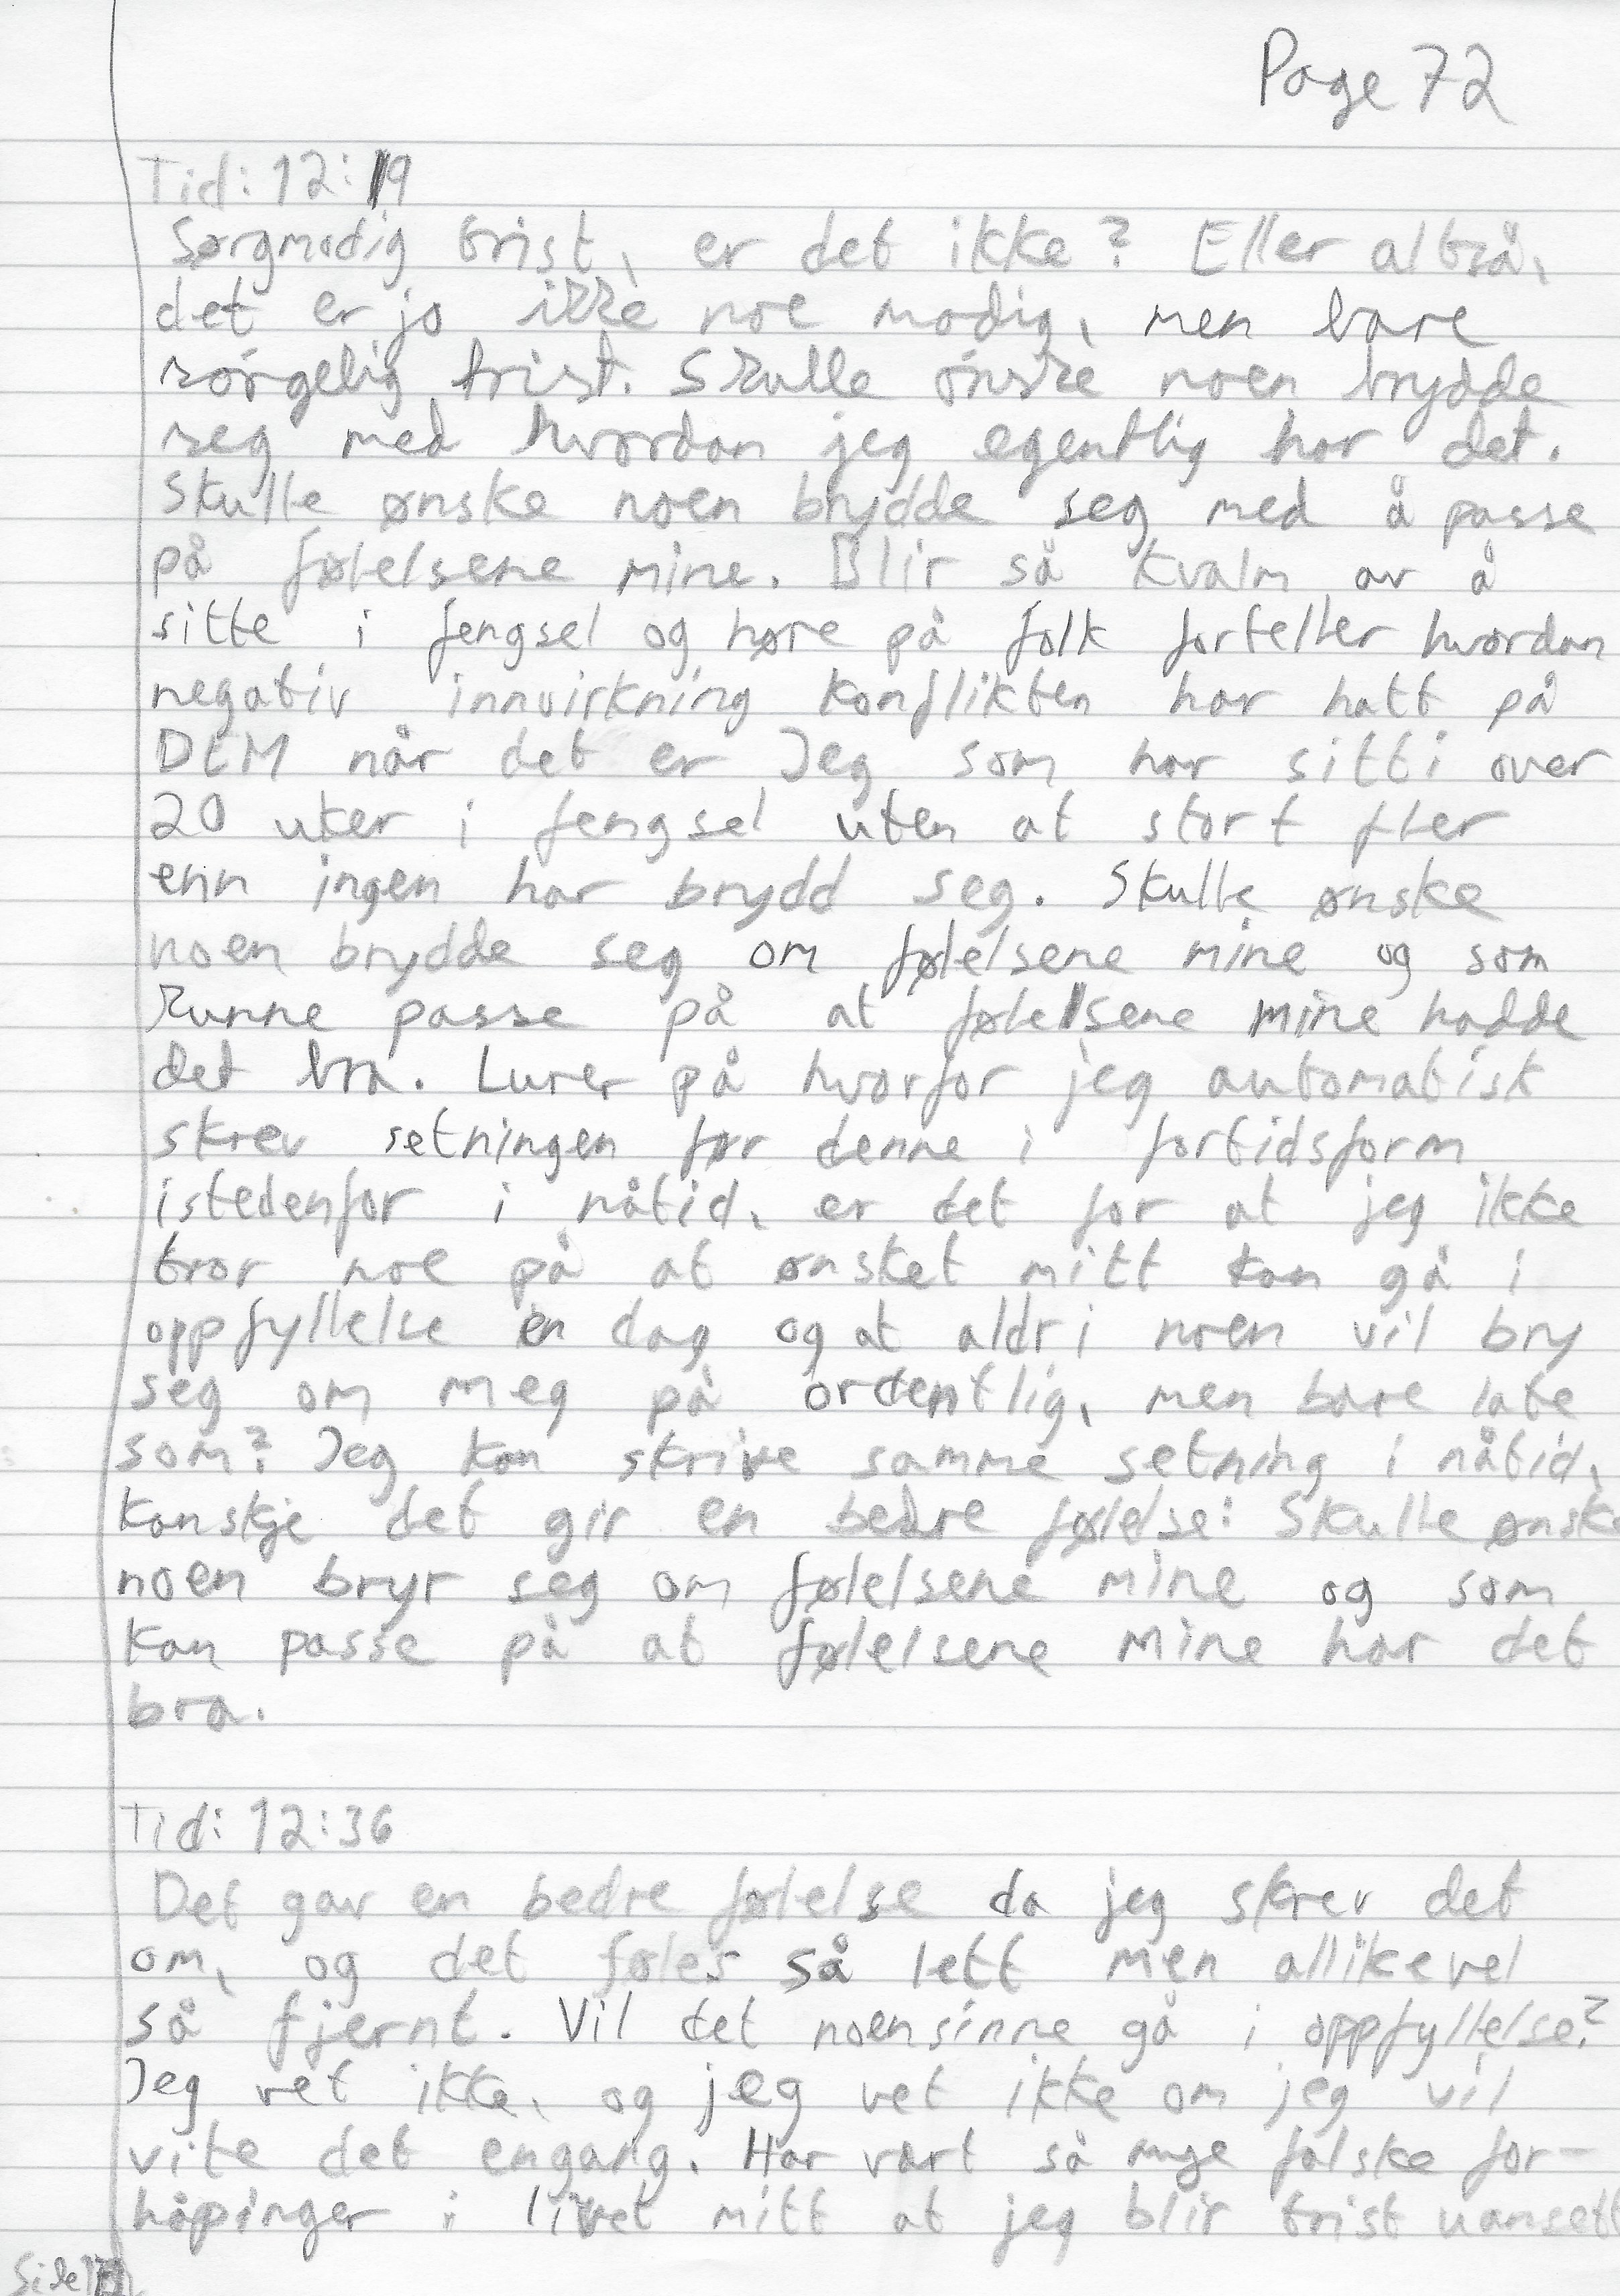 Page 72
Tid: 12:19
Sørgmodig trist, er det ikke? Eller altså,
det er jo ikke noe modig, men bare
sørgelig trist. Skulle ønske noen brydde
seg med hvordan jeg egentlig har det.
Skulle ønske noen brydde seg med å passe
på følelsene mine. Blir så kvalm av å
sitte i fengsel og høre på folk forteller hvordan
negativ innvirkning konflikten har hatt på
DEM når det er Jeg som har sitti over
20 uker i fengsel uten at stort fler
enn ingen har brydd seg. Skulle ønske
noen brydde seg om følelsene mine og som
kunne passe på at følelsene mine hadde
det bra. Lurer på hvorfor jeg automatisk
skrev setningen før denne i fortidsform
istedenfor i nåtid, er det for at jeg ikke
tror noe på at ønsket mitt kan gå i
oppfyllelse en dag og at aldri noen vil bry
seg om meg på ordentlig, men bare late
som? Jeg kan skrive samme setning i nåtid,
kanskje det gir en bedre følelse: Skulle ønske
noen bryr seg om følelsene mine og som
kan passe på at følelsene mine har det
bra.
Tid: 12:36
Det gav en bedre følelse da jeg skrev det
om, og det føles så lett men allikevel
så fjernt. Vil det noensinne gå i oppfyllelse?
Jeg vet ikke, og jeg vet ikke om jeg vil
vite det engang. Har vært så mye falske for-
håpinger i livet mitt at jeg blir trist uansett
Side